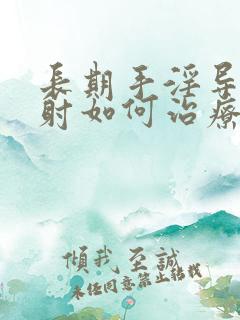 长期手淫导
射如何治疗
倾我至誠
未经同意禁止转载